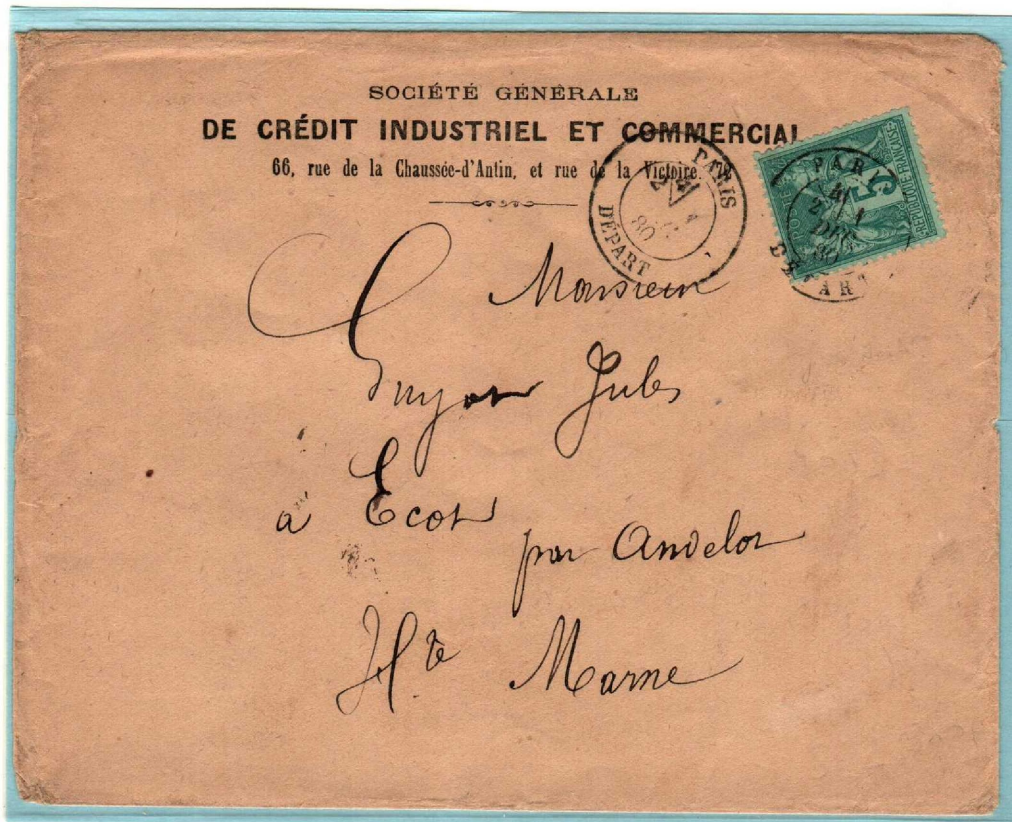 SOCIÉTÉ GÉNÉRALE
DE CRÉDIT INDUSTRIEL ET COMMERCIAL
66, rue de la Chaussée-d'Antin, et rue de la Victoire.
PARIS
80
DÉPART
PARIS
4
2
DEC
80
DEPART
5
REPUBLIQUE FRANÇAISE
Monsieur
Guyot Jules
à Ecot
par Andelot
Hte Marne